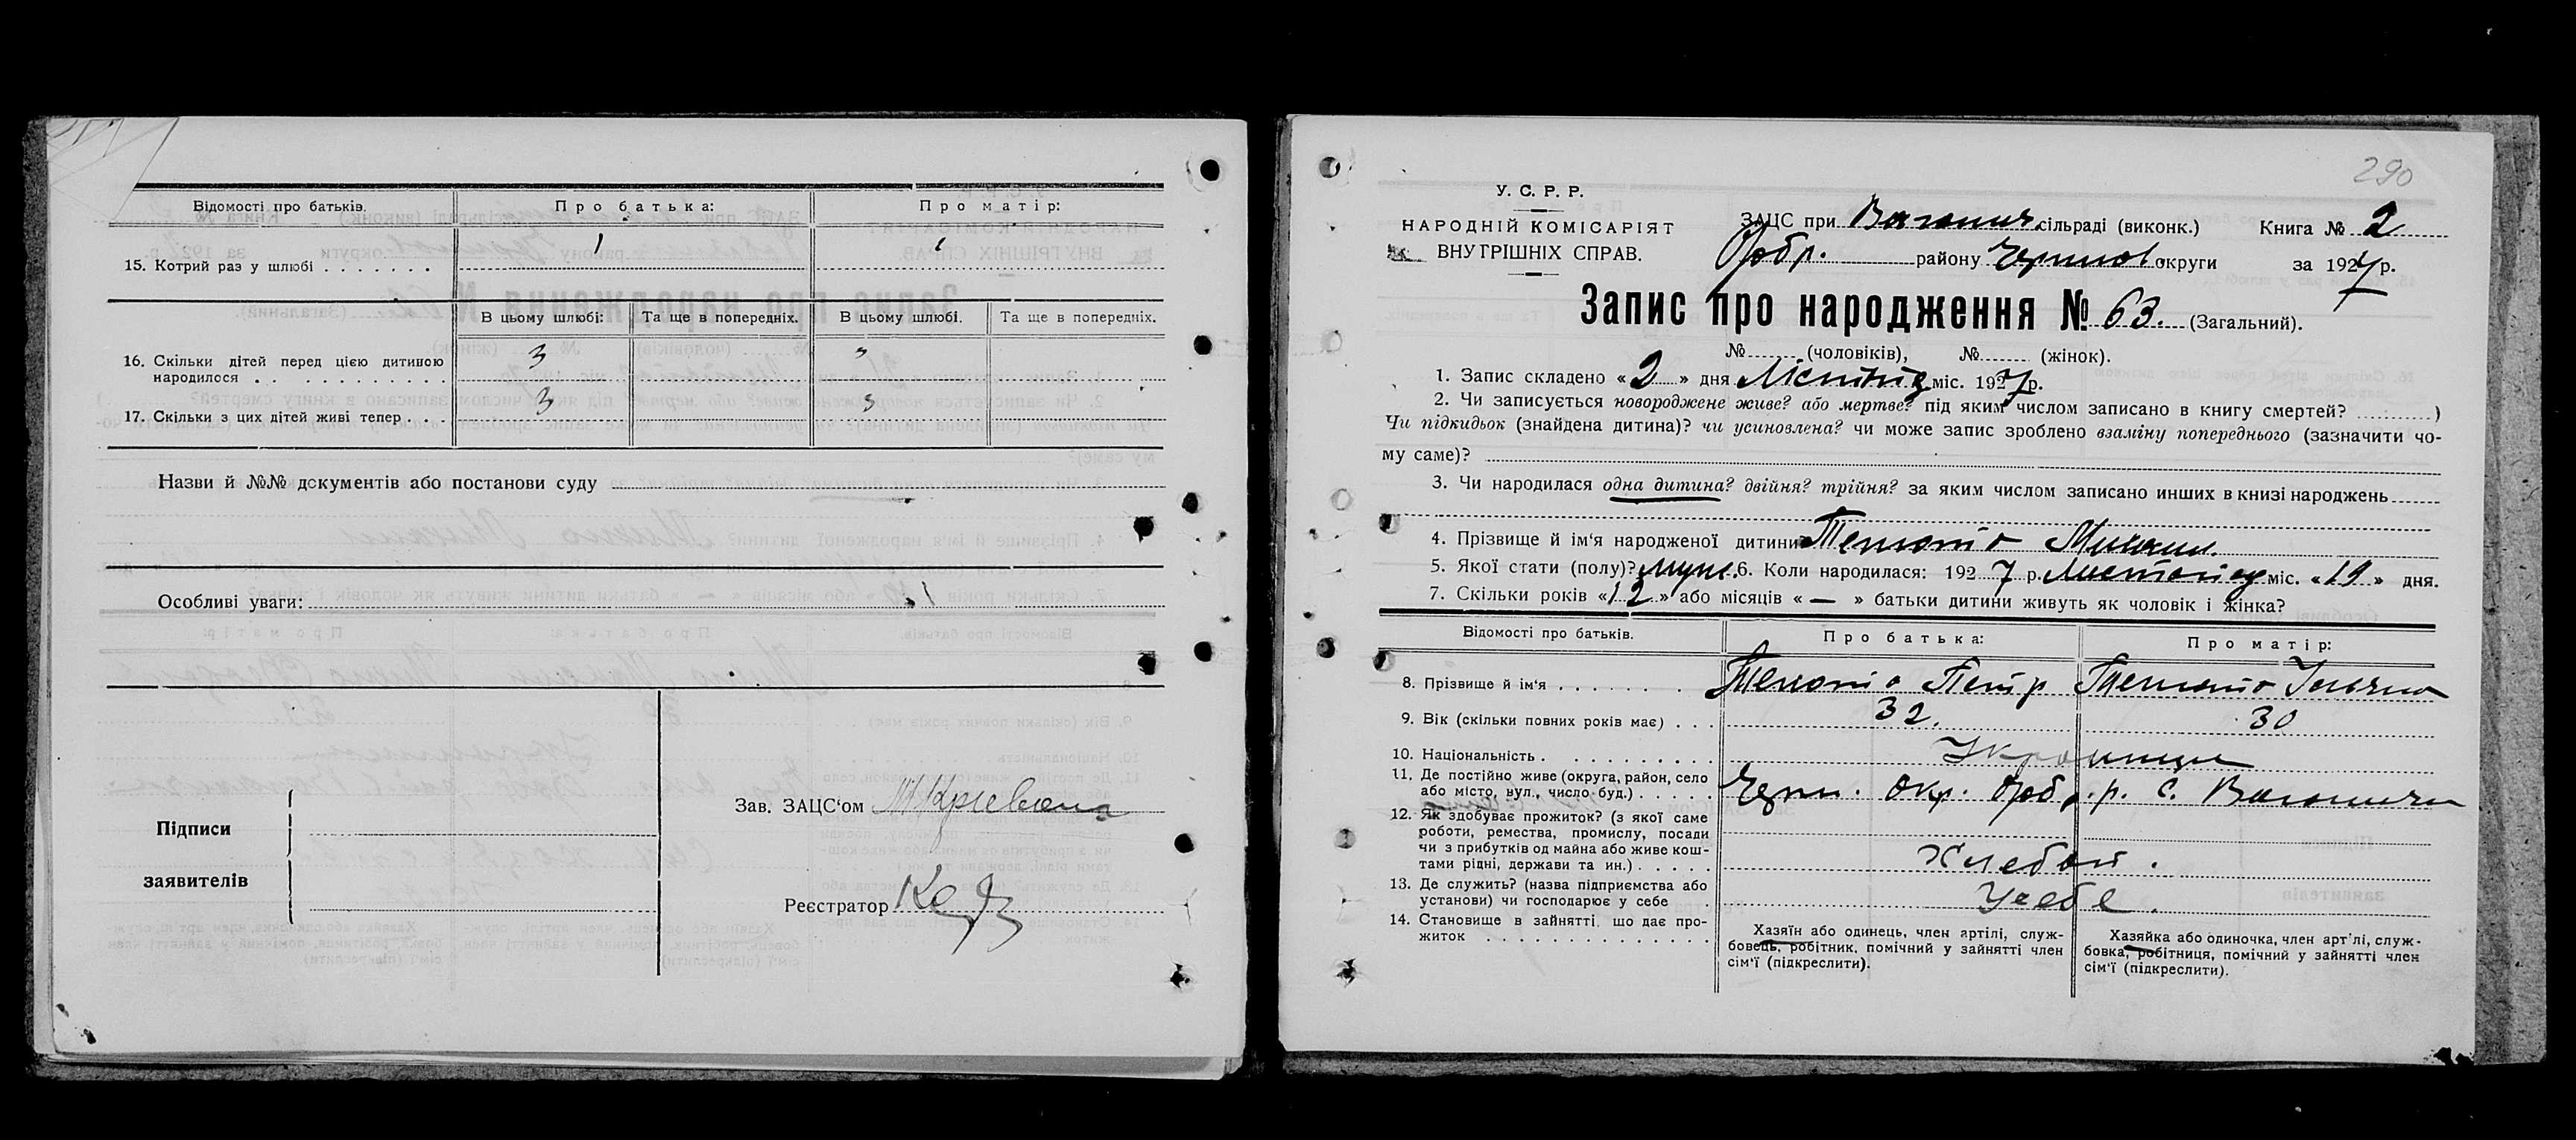 Відомості про батьків.
Про батька:
Про матір:
15. Котрий раз у шлюбі . . . . . . .
1
В цьому шлюбі:
Та ще в попередніх.
В цьому шлюбі.
Та ще в попередніх.
16. Скільки дітей перед цією дитиною
народилося . . . . . . . . . . . .
3
"
17. Скільки з цих дітей живі тепер . . .
3
3
Назви й №№ документів або постанови суду
Особливі уваги:
Підписи
заявителів
Зав. ЗАЦС'ом
Реєстратор
290
У. С. Р. Р.
НАРОДНІЙ КОМІСАРІЯТ
ВНУТРІШНІХ СПРАВ.
ЗАЦС при Ваганич. сільраді (виконк.)
Книга № 2
району округи
за 1927 р.
Запис про народження № 63. (Загальний).
№ (чоловіків), № (жінок).
1. Запис складено «2» дня міс. 1927 р.
2. Чи записується новороджене живе? або мертве? під яким числом записано в книгу смертей? )
Чи підкидьок (знайдена дитина)? чи усиновлена? чи може запис зроблено взаміну попереднього (зазначити чо-
му саме)?
3. Чи народилася одна дитина? двійня? трійня? за яким числом записано инших в книзі народжень
4. Прізвище й ім'я народженої дитини Михаил.
5. Якої стати (полу)? муж. 6. Коли народилася: 1927 р. Листопад міс. «19» дня.
7. Скільки років «12» або місяців «—» батьки дитини живуть як чоловік і жінка?
Відомості про батьків.
Про батька:
Про матір:
8. Прізвище й ім'я . . . . . . . .
Петр
9. Вік (скільки повних років має) . . .
32.
30
10. Національність . . . . . . . . . .
Украинци
11. Де постійно живе (округа, район, село
або місто, вул., число буд.) . . . . .
Черни. окр. р. с. Ваганичи
12. Як здобуває прожиток? (з якої саме
роботи, ремества, промислу, посади
чи з прибутків од майна або живе кош-
тами рідні, держави та ин.) . . . . .
Хлебоп.
13. Де служить? (назва підприємства або
установи) чи господарює у себе .
У себе.
14. Становище в зайнятті, що дає про-
житок . . . . . . . . . . . . . .
Хазяїн або одинець, член артілі, служ-
бовець, робітник, помічний у зайнятті член
сім'ї (підкреслити).
Хазяйка або одиночка, член арт'лі, служ-
бовка, робітниця, помічний у зайнятті член
сім'ї (підкреслити).